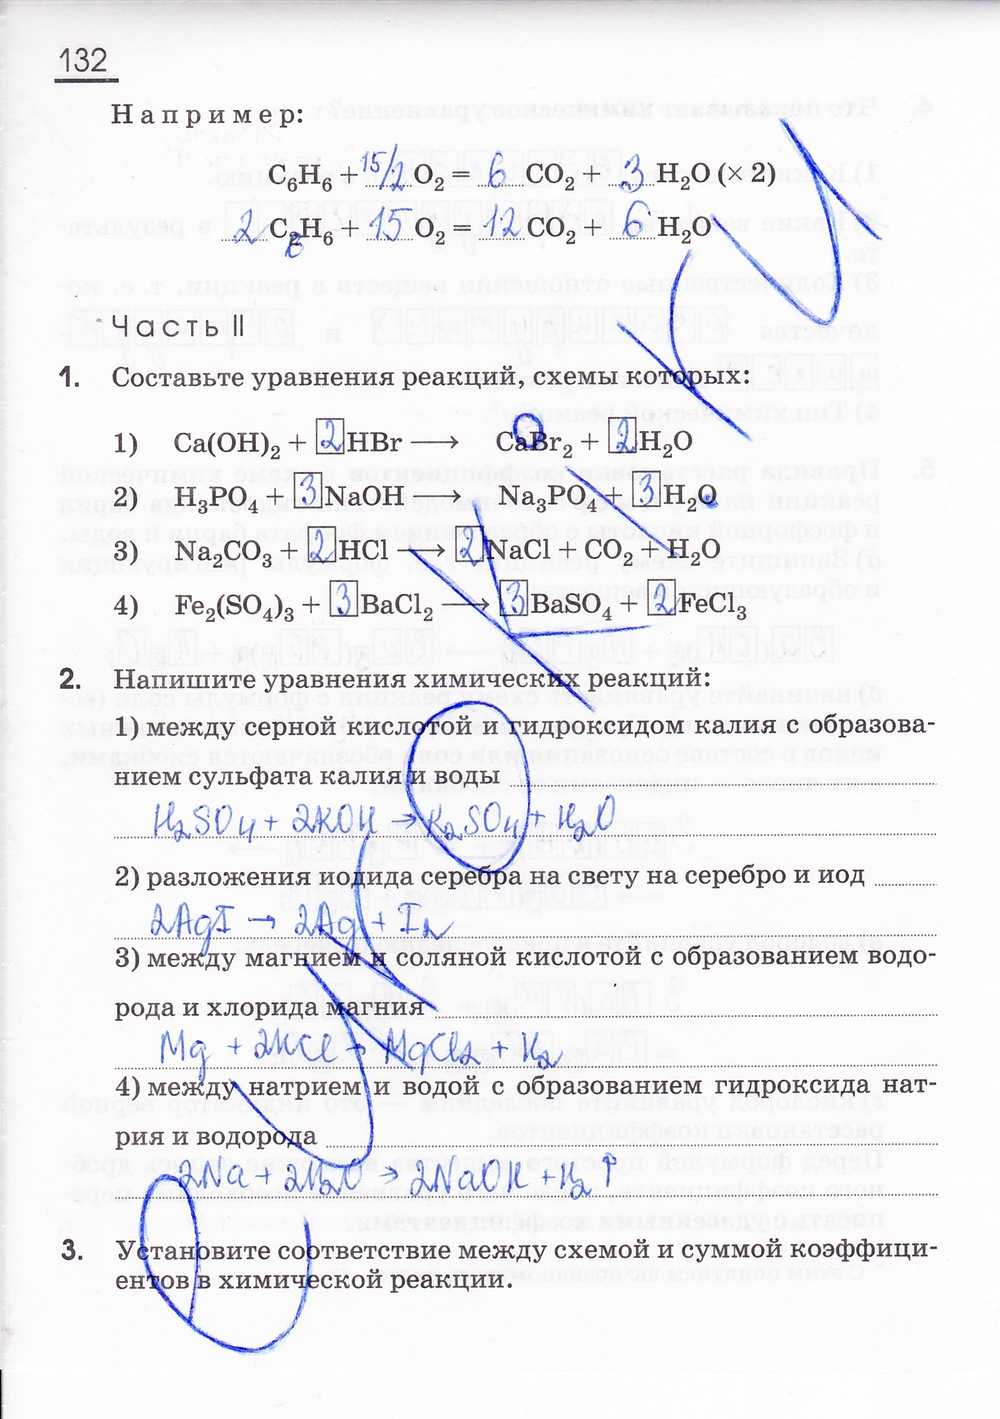 132
Например:
C₆H₆ + 15/2 O₂ = 6 CO₂ + 3 H₂O (× 2)
2 C₆H₆ + 15 O₂ = 12 CO₂ + 6 H₂O
Часть II
1. Составьте уравнения реакций, схемы которых:
1) Ca(OH)₂ + 2 HBr ⟶ CaBr₂ + 2 H₂O
2) H₃PO₄ + 3 NaOH ⟶ Na₃PO₄ + 3 H₂O
3) Na₂CO₃ + 2 HCl ⟶ 2 NaCl + CO₂ + H₂O
4) Fe₂(SO₄)₃ + 3 BaCl₂ ⟶ 3 BaSO₄ + 2 FeCl₃
2. Напишите уравнения химических реакций:
1) между серной кислотой и гидроксидом калия с образова-
нием сульфата калия и воды
H₂SO₄ + 2KOH → K₂SO₄ + H₂O
2) разложения иодида серебра на свету на серебро и иод
2AgI → 2Ag + I₂
3) между магнием и соляной кислотой с образованием водо-
рода и хлорида магния
Mg + 2HCl → MgCl₂ + H₂
4) между натрием и водой с образованием гидроксида нат-
рия и водорода
2Na + 2H₂O → 2NaOH + H₂↑
3. Установите соответствие между схемой и суммой коэффици-
ентов в химической реакции.